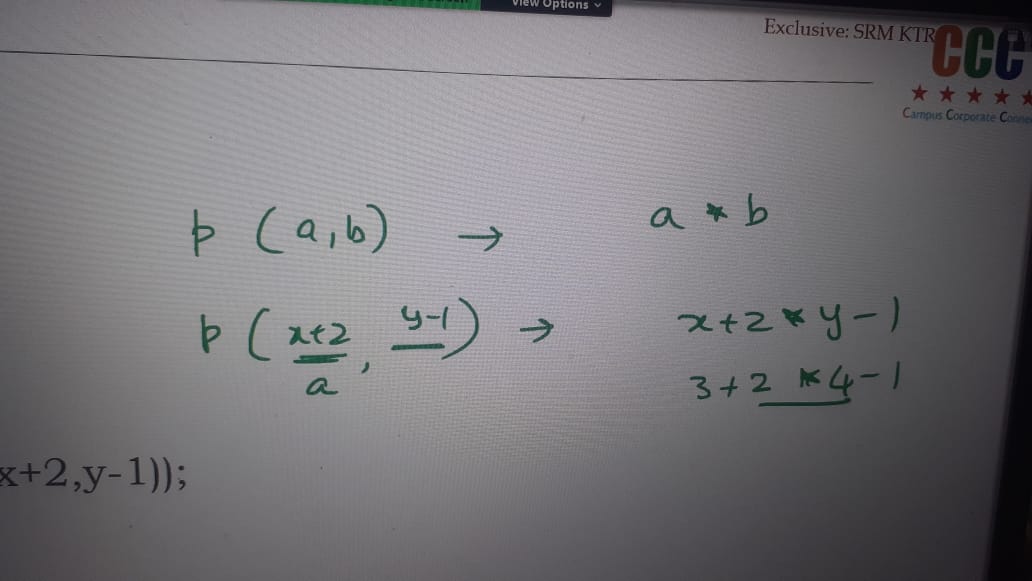 View Options
Exclusive: SRM KTR
CCC
Campus Corporate
p (a,b) → a * b
p (x+2, y-1) → x+2 * y-1
a
3+2 * 4-1
x+2,y-1));